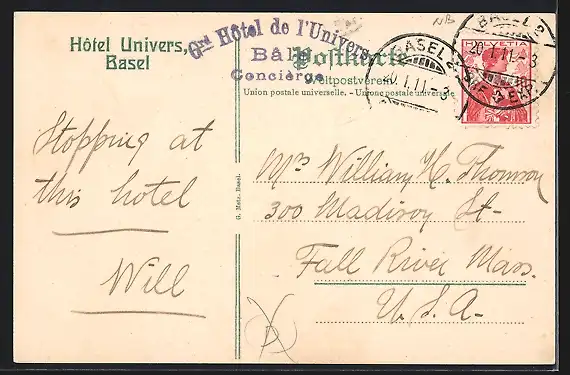 NB
Hôtel Univers,
Basel
Grd Hôtel de l'Univers
Bâle
Concierge
Postkarte
Weltpostverein
Union postale universelle. - Unione postale universale
BASEL 2
20.X.11.-3
BASEL 2
HELVETIA
10
BRIEFEXP.
Stopping at
this hotel
Will
G. Metz, Basel.
Mrs William H. Thomson
300 Madison St-
Fall River Mass.
U.S.A-